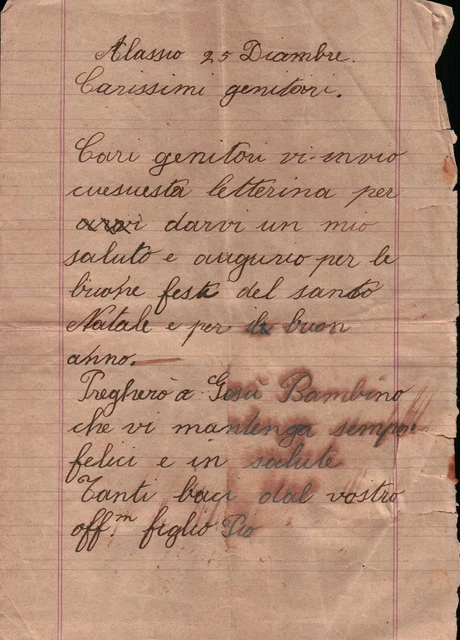 Alassio 25 Diambre.
Carissimi genitori.
Cari genitori vi invio
cuesuesta letterina per
darvi un mio
saluto e augurio per le
buone feste del santo
Natale e per buon
anno.
Pregherò a Gesù Bambino
che vi mantenga sempre
felici e in salute
Tanti baci dal vostro
aff.m figlio Pio